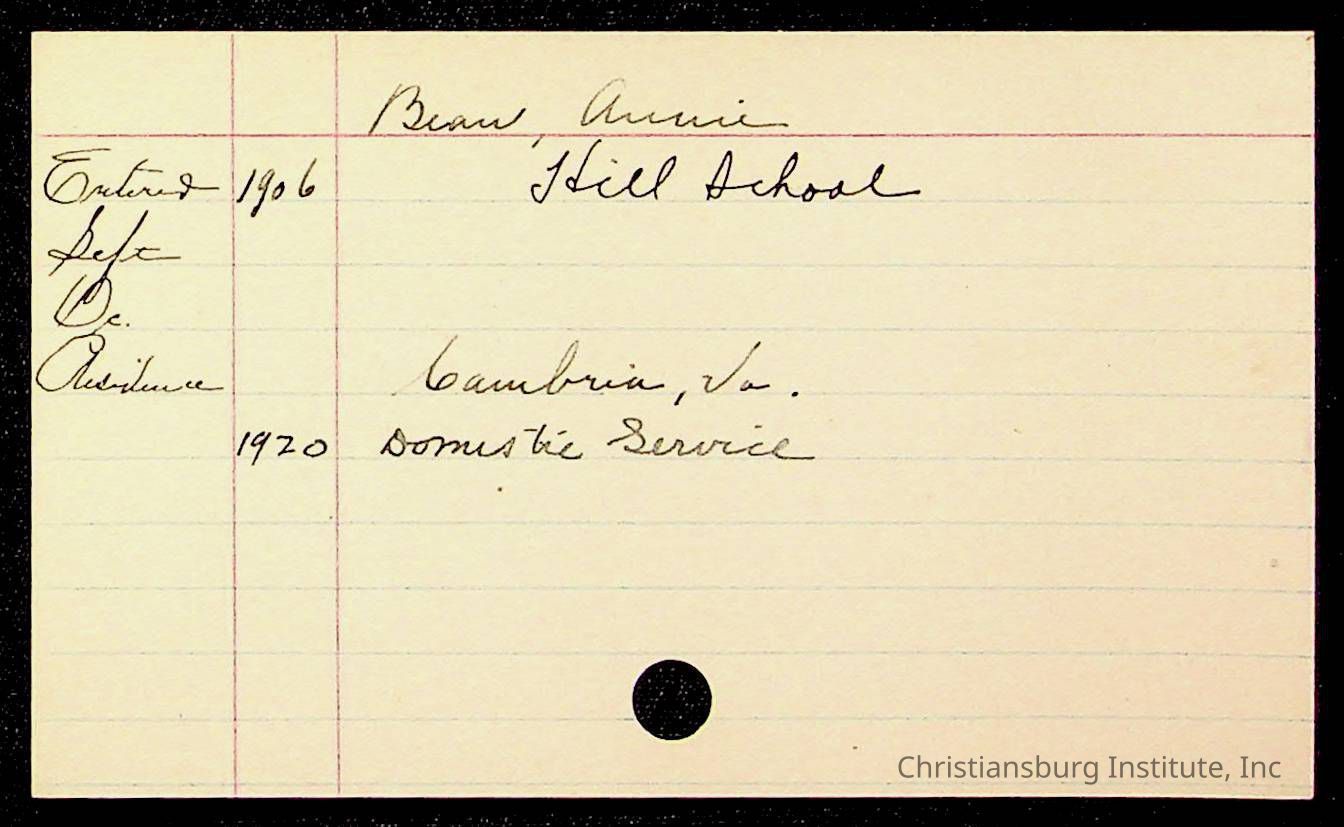 Bean, Annie
Entered 1906 Hill School
Left
Oc.
Residence Cambria, Va.
1920 Domestic Service
Christiansburg Institute, Inc